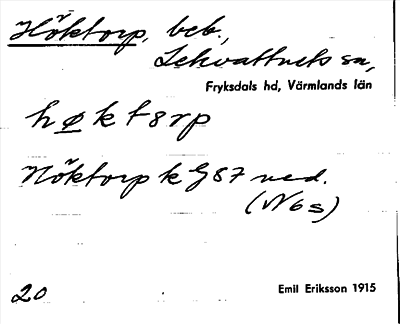 Höktorp, beb.,
Lekvattnets sn,
Fryksdals hd, Värmlands län
høktorp
Höktorp k G87 ned.
(N6s)
20 Emil Eriksson 1915